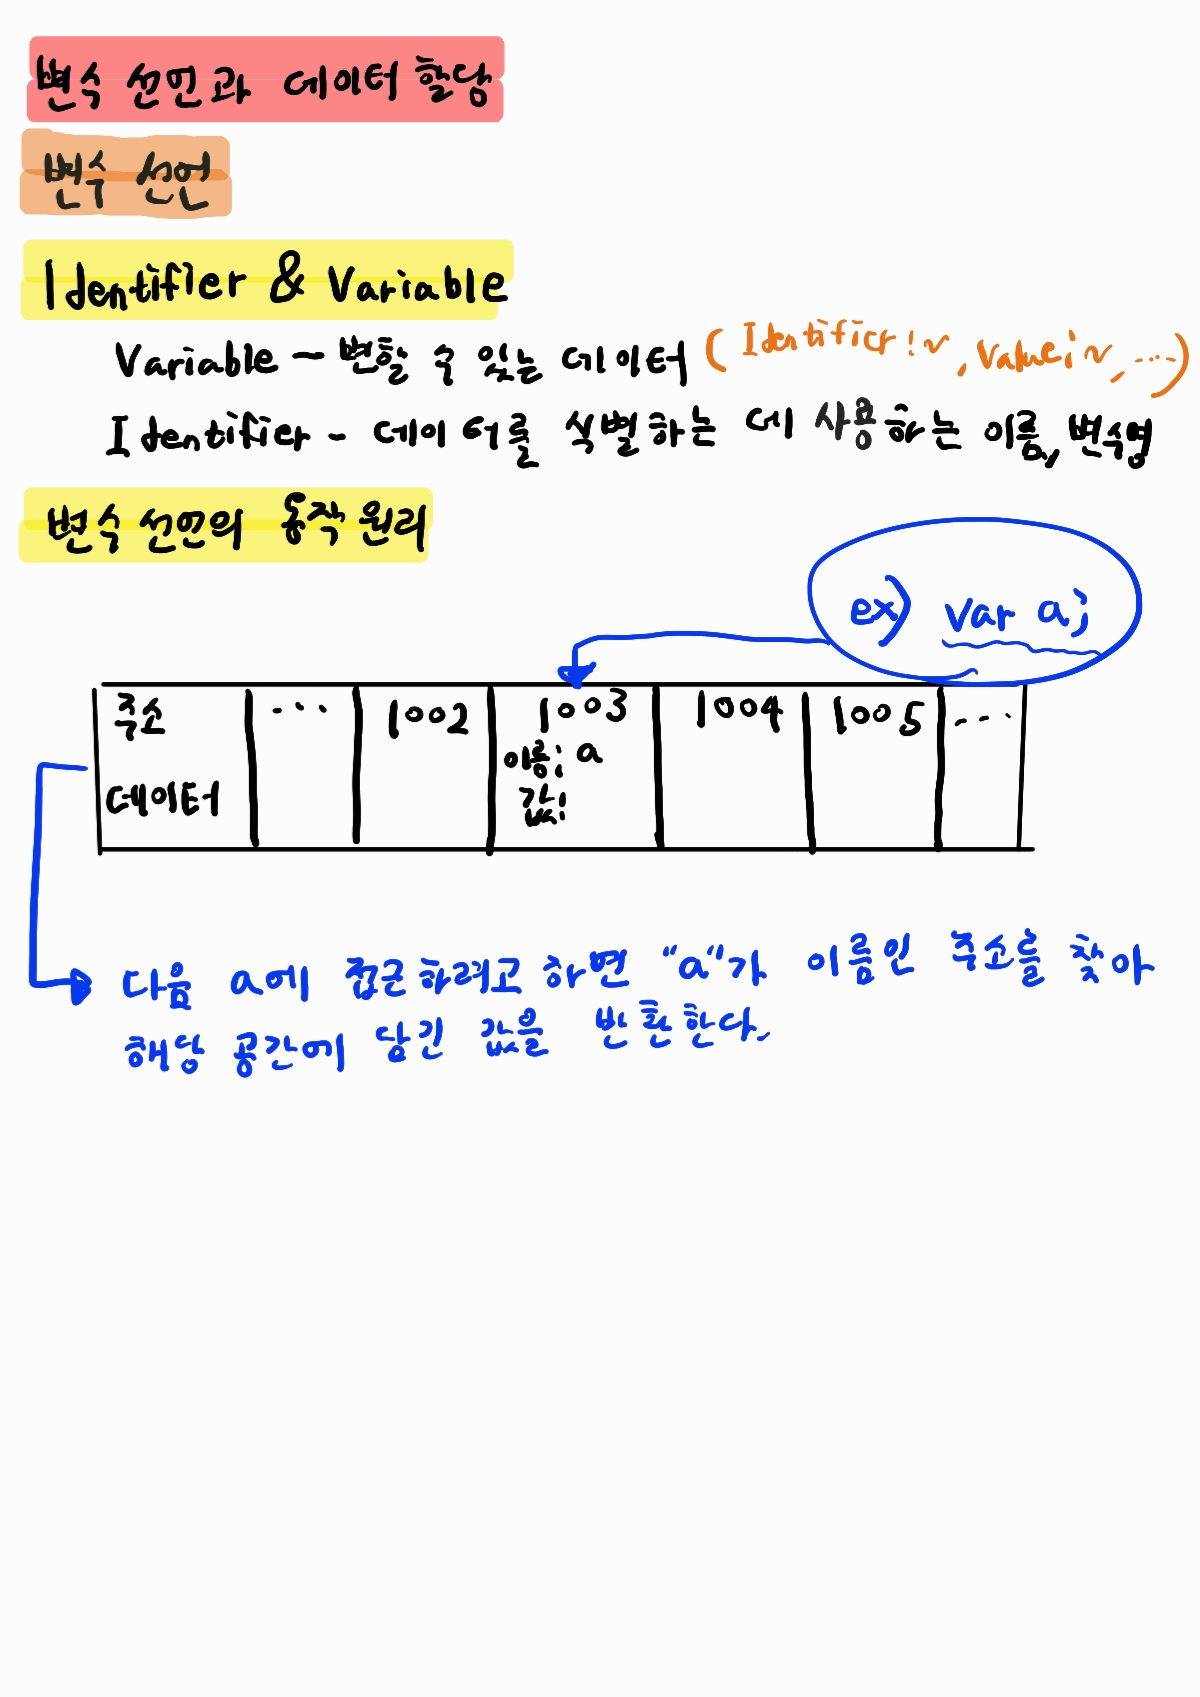 변수 선언과 데이터 할당
변수 선언
Identifier & Variable
Variable - 변할 수 있는 데이터 (Identifier:~, Value:~, ...)
Identifier - 데이터를 식별하는 데 사용하는 이름, 변수명
변수 선언의 동작 원리
ex) var a;
주소 ... 1002 1003 1004 1005 ...
이름: a
데이터 값:
다음 a에 접근하려고 하면 "a"가 이름인 주소를 찾아
해당 공간에 담긴 값을 반환한다.